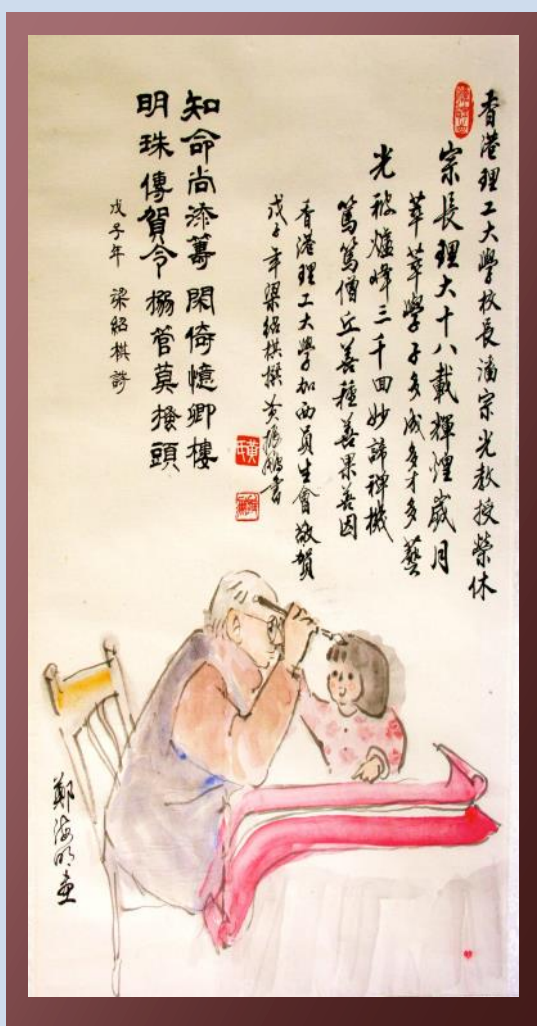 香港理工大學校長潘宗光教授榮休
宗長理大十八載輝煌歲月
莘莘學子多成多才多藝
光被爐峰三千回妙諦禪機
篤篤僧丘善種善果善因
香港理工大學加西員生會敬賀
戊子年梁紹棋撰 黃振鵬書
知命尚添籌 閑倚憶卿樓
明珠傳賀令 搦管莫搔頭
戊子年 梁紹棋詩
鄭海明畫